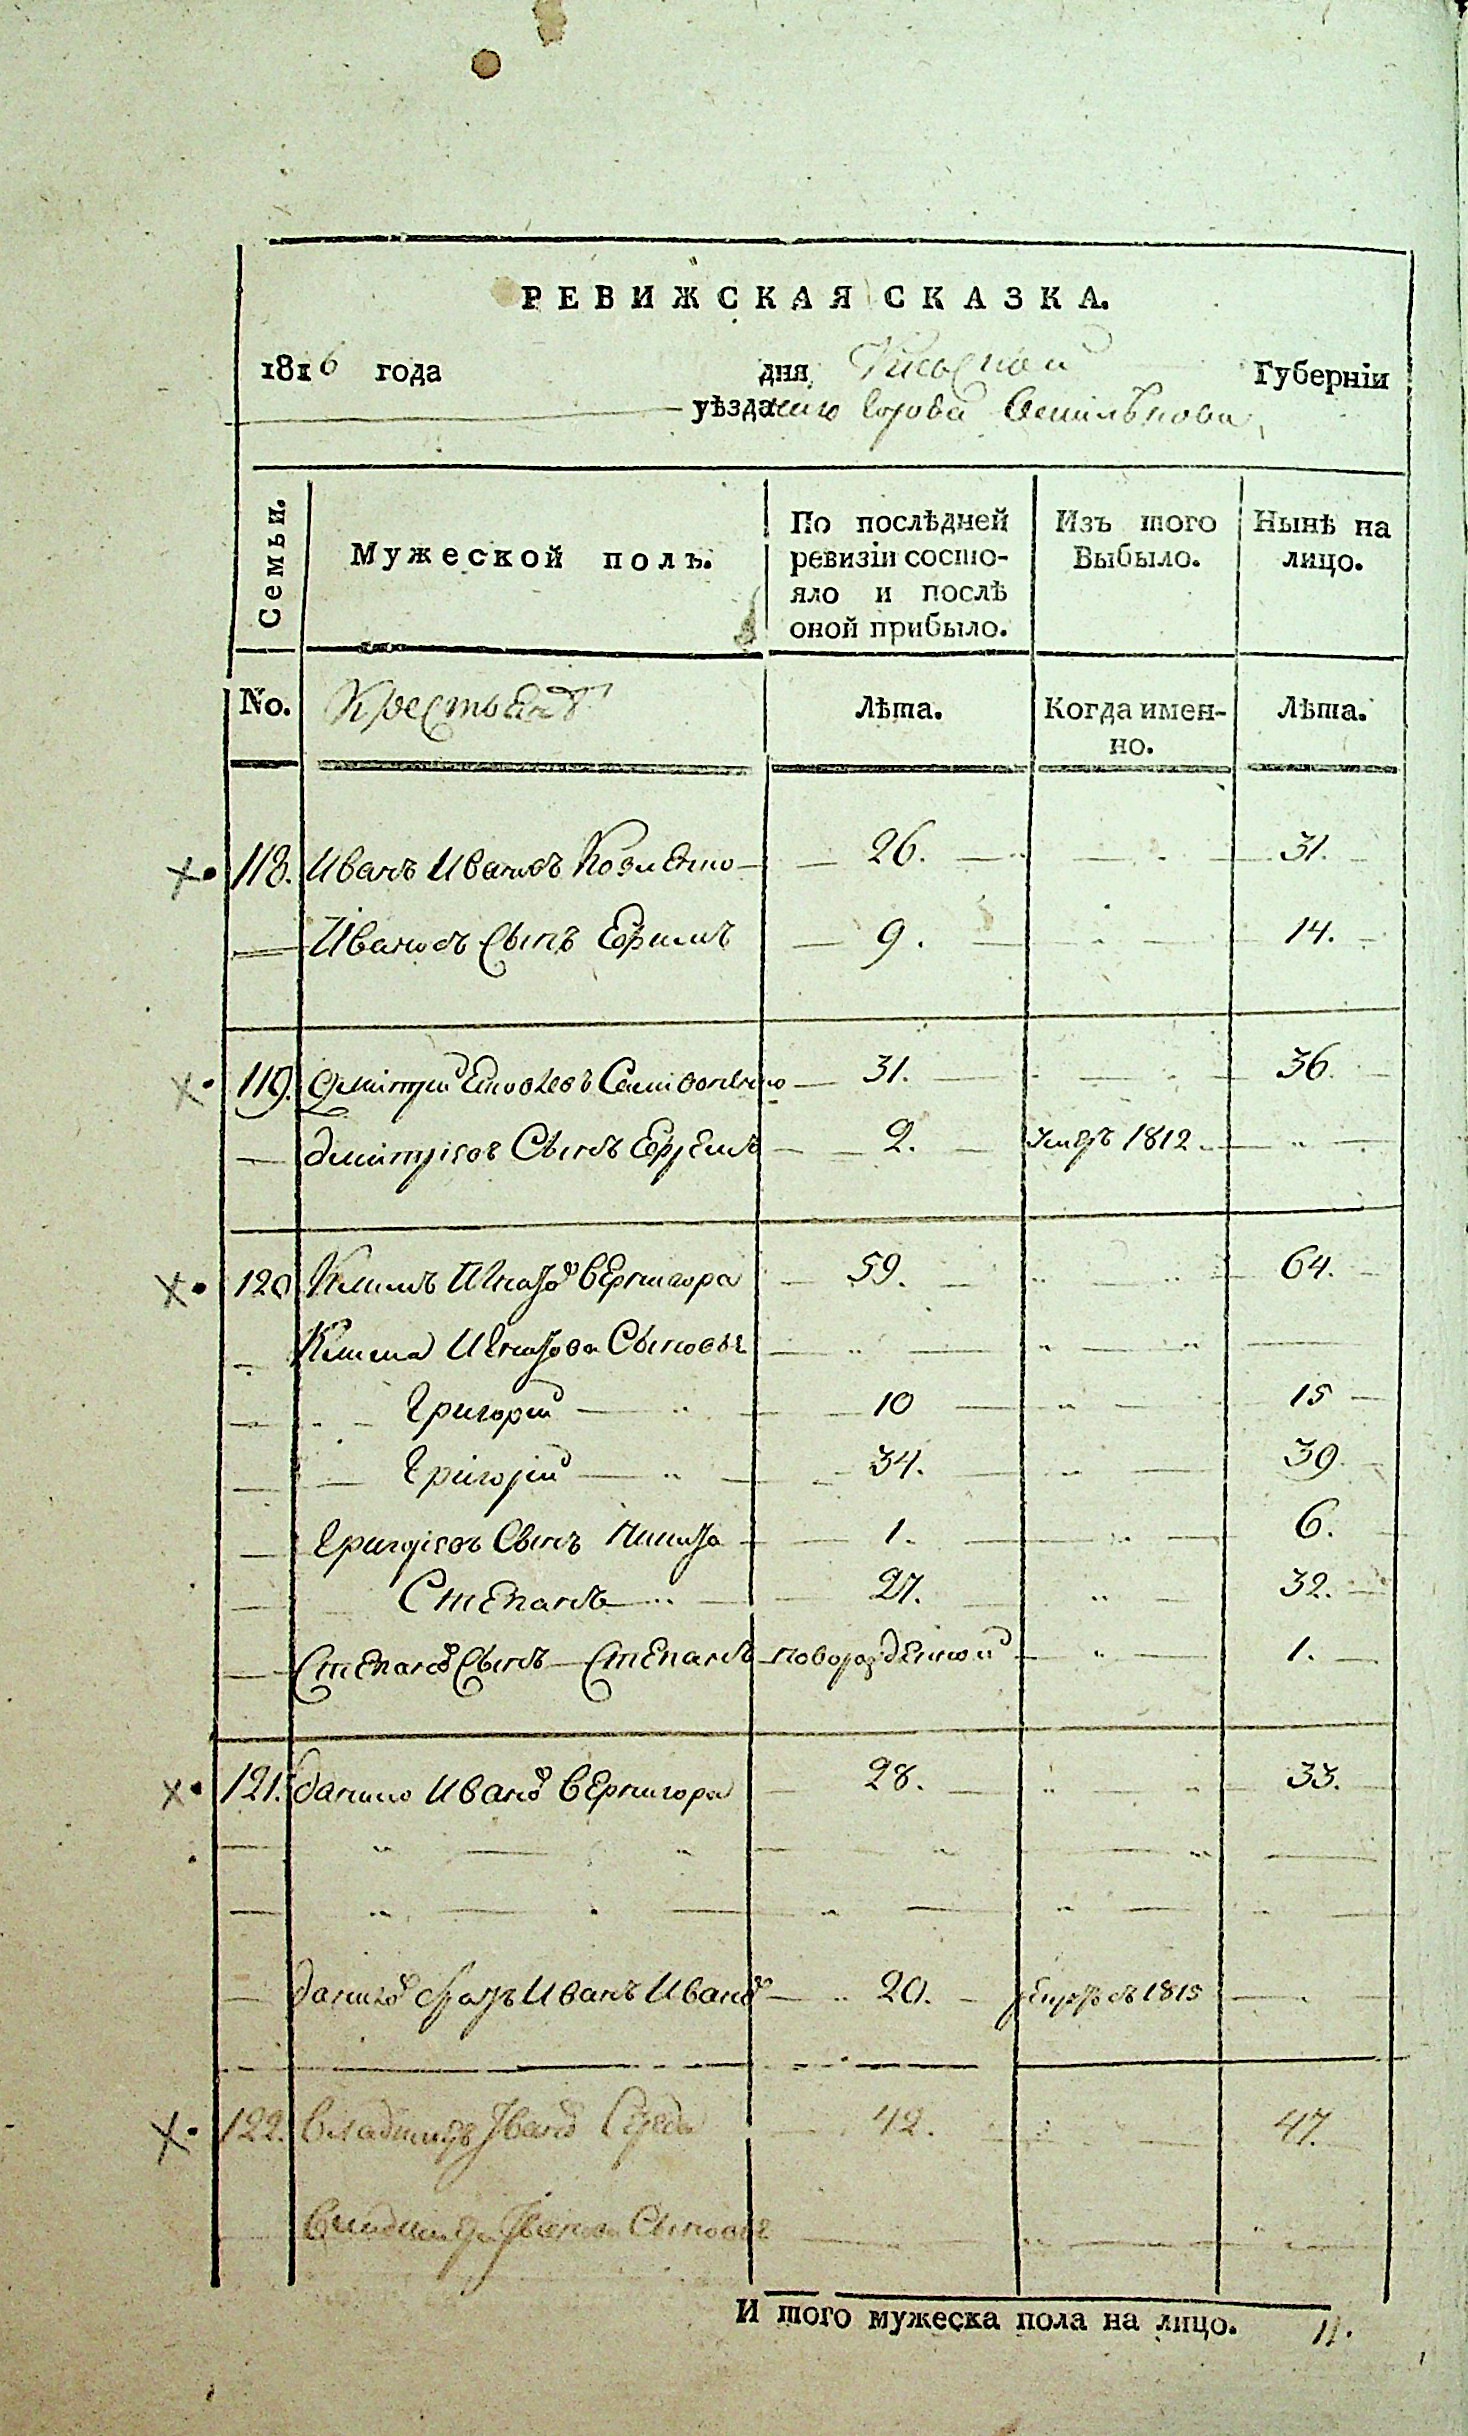 РЕВИЖСКАЯ СКАЗКА.
1816 года дня Кіевской Губерніи
уѣзда города
Семьи.
Мужеской полъ.
По послѣдней ревизіи состо-
яло и послѣ оной прибыло.
Изъ того Выбыло.
Нынѣ на лицо.
No. Крестьянъ Лѣта. Когда имен-
но. Лѣта.
118. Иванъ Ивановъ 26. 31.
Ивановъ Сынъ Ефимъ 9. 14.
119. Дмитрій 31. 36.
Дмитріевъ Сынъ Ефремъ 2. умеръ 1812
120 Климъ Игнатовъ Вернигора 59. 64.
Клима Игнатова Сыновья
Григорій 10 15
Григорій 34. 39
Григоріевъ Сынъ Никита 1. 6.
Степанъ 27. 32.
Степановъ Сынъ Степанъ новорожденной 1.
121. Данило Ивановъ Вернигора 28. 33.
Данилов братъ Иванъ Иванов 20. рекрутъ съ 1815
122. Владимиръ Иванов Середа 42. 47.
Владимира Иванова Сыновья
И того мужеска пола на лицо. 11.